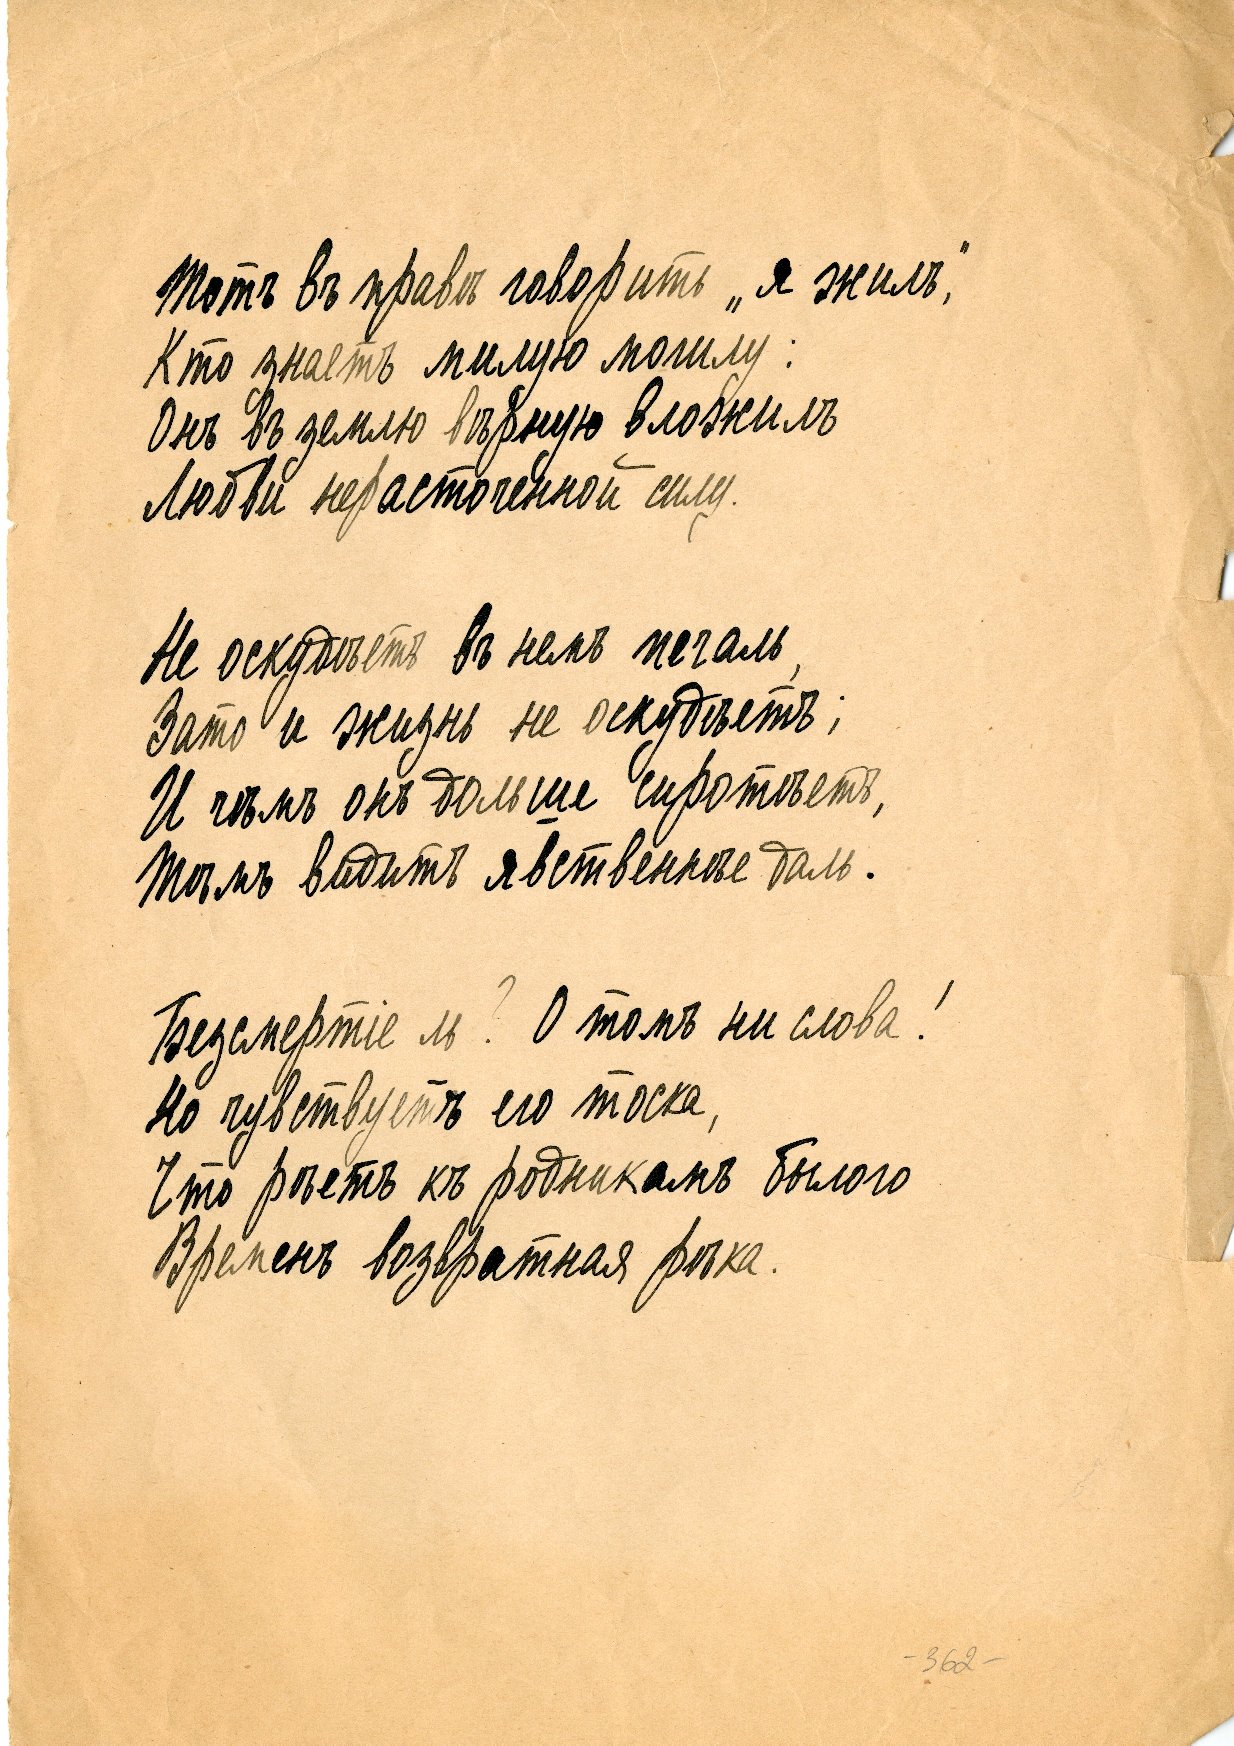 Тотъ въ правѣ говорить „я жилъ,"
Кто знаетъ милую могилу:
Онъ въ землю вѣрную вложилъ
Любви нерасточенной силу.
Не оскудѣетъ въ немъ печаль,
Зато и жизнь не оскудѣетъ;
И чѣмъ онъ дольше сиротѣетъ,
Тѣмъ видитъ явственнѣе даль.
Безсмертіе ль? О томъ ни слова!
Но чувствуетъ его тоска,
Что рѣетъ къ родникамъ былого
Временъ возвратная рѣка.
-362-